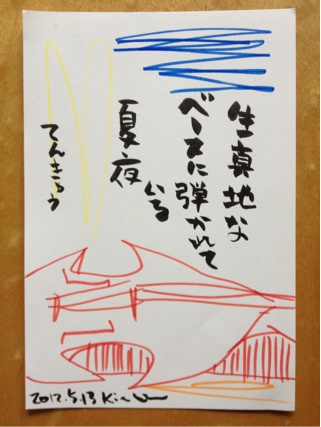 生真地な
ベースに弾かれて
いる
夏夜
てんきゅう
2012.5.13